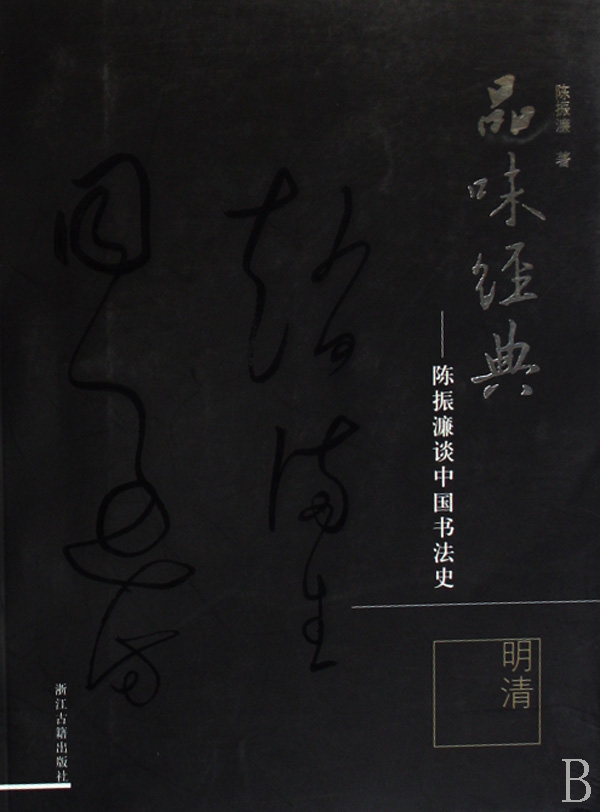 陈振濂 著
品味经典
——陈振濂谈中国书法史
明清
浙江古籍出版社
B